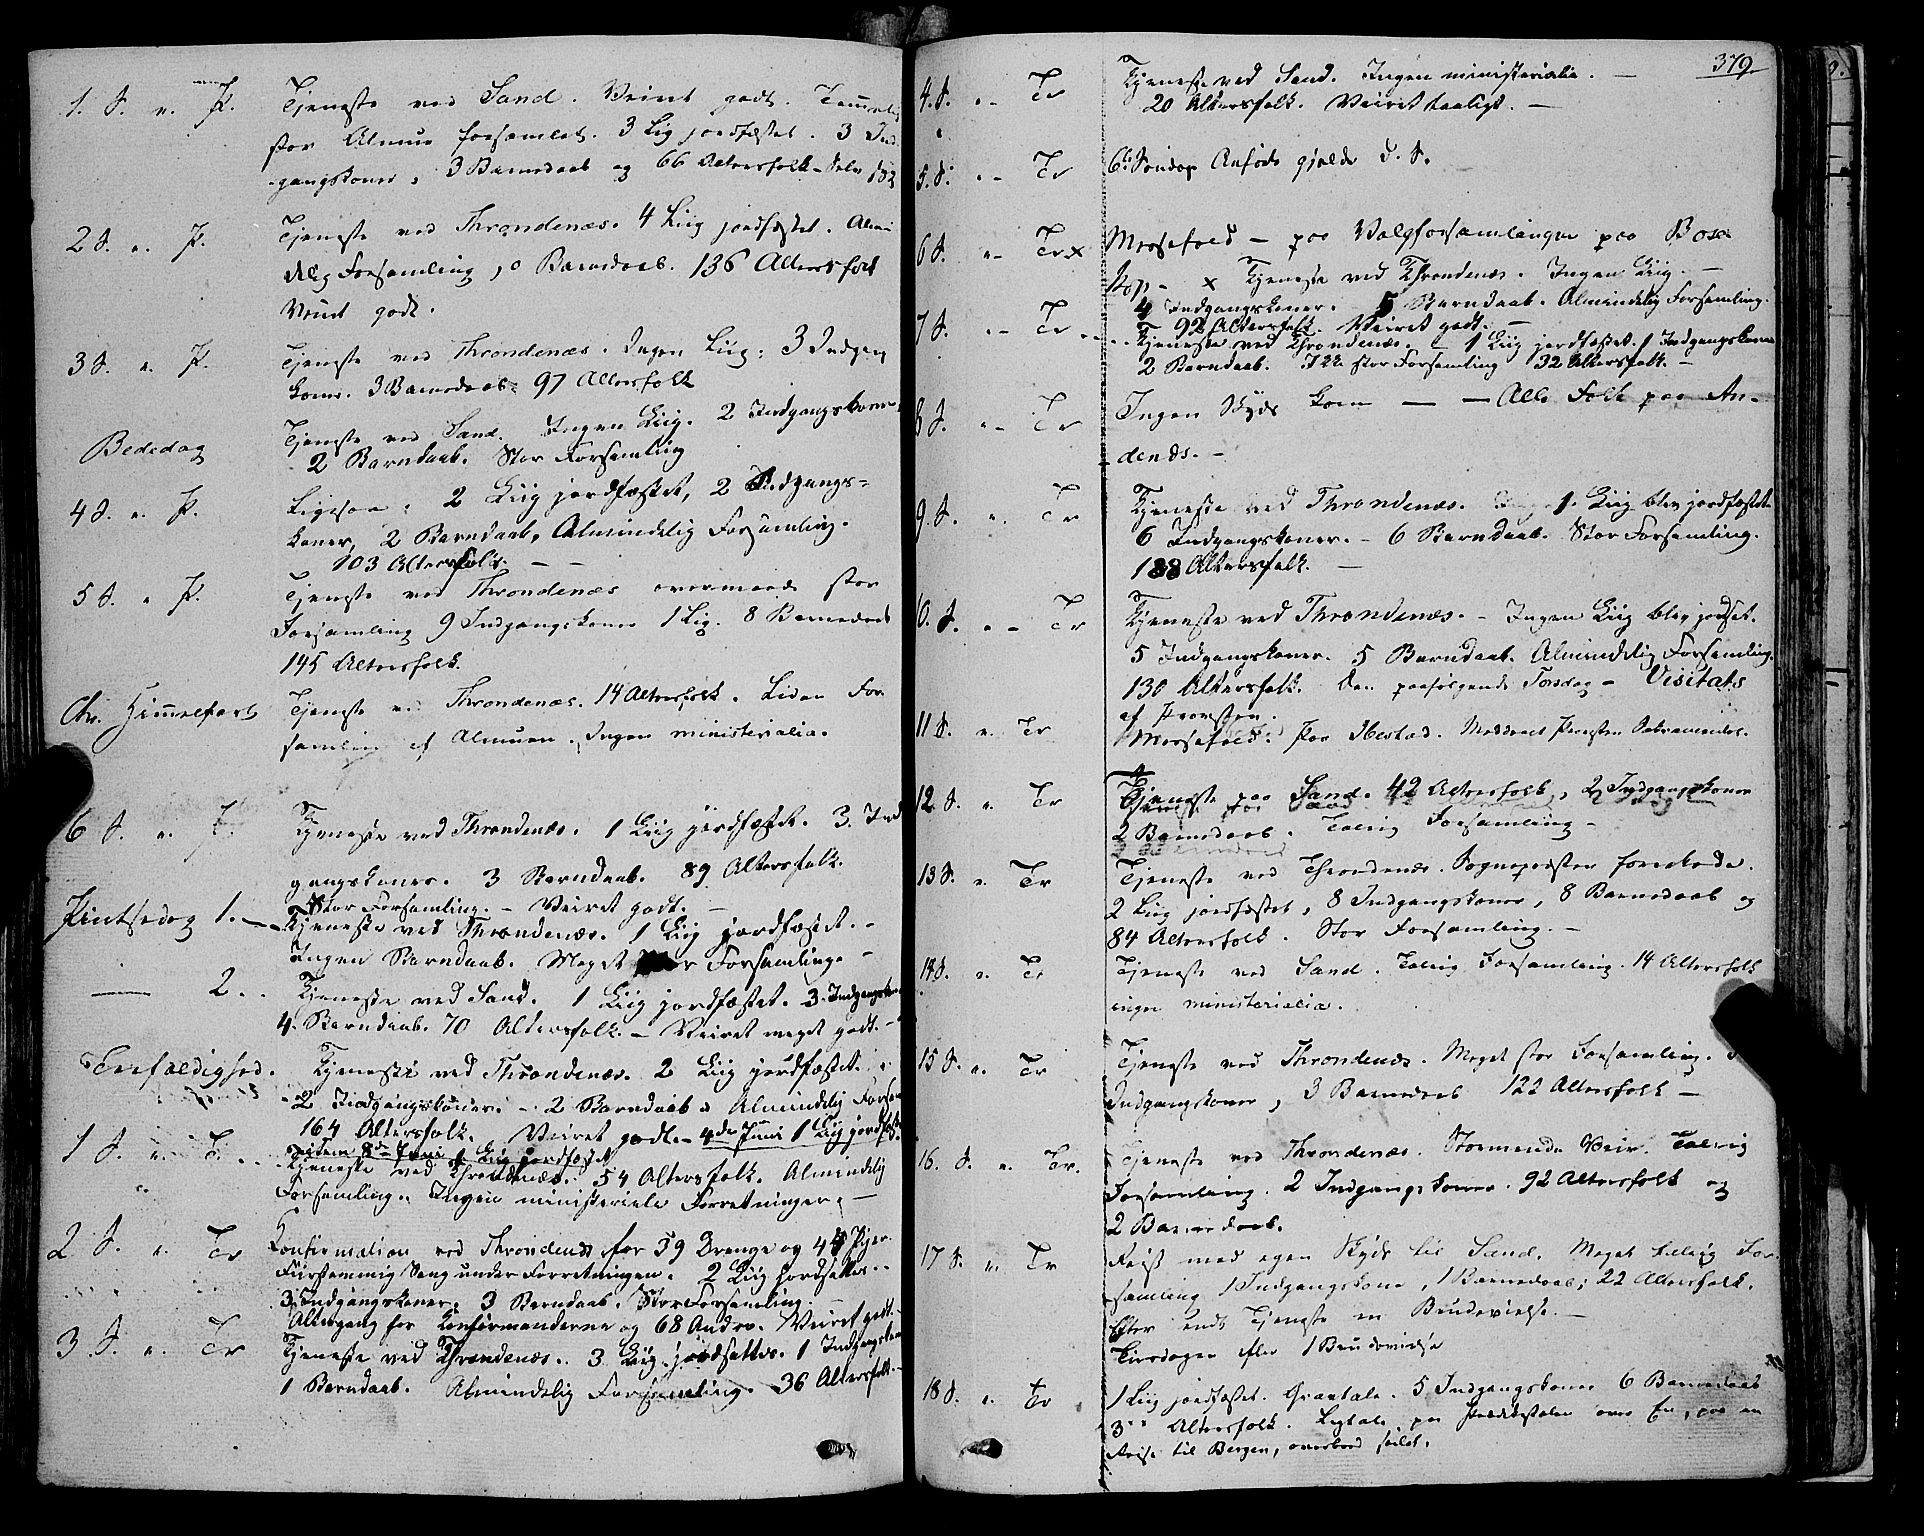 1. S. e. P. Tjeneste ved Sand. Veiret godt. Temmelig
stor Almue forsamlet. 3 Lig jordfæstet. 3 Ind
gangskoner, 3 Barnedaab og 66 Altersfolk
2 S. e. P. Tjeneste ved Throndenæs. 4 Liig jordfæstet. Almin
delig Forsamling, 0 Barnedaab. 136 Altersfolk
Veiret godt.
3 S. e. P. Tjeneste ved Throndenæs. Ingen Liig. 3 Indgang
koner. 3 Barnedaab. 97 Altersfolk
Bededag Tjeneste ved Sand. Ingen Liig. 2 Indgangskoner
2 Barndaab. Stor Forsamling
4 S. e. P. Ligesaa. 2 Liig jordfæstet, 2 Indgangs=
koner, 2 Barndaab, Almindelig Forsamling.
103 Altersfolk. — —
5 S. e P. Tjeneste ved Throndenæs overmaade stor
Forsamling 9 Indgangskoner 1 Lig. 8 Barnedaab
145 Altersfolk.
Chr. Himmelfart Tjeneste ved Throndenæs. 14 Altersfolk. Liden For
samling af Almuen. Ingen ministerialia.
6 S. e. P. Tjeneste ved Throndenæs. 1 Liig jordfæstet. 3. Ind
gangskoner. 3 Barndaab. 89 Altersfolk.
Stor Forsamling. — Veiret godt. —
Pintsedag 1. — Tjeneste ved Throndenæs. 1 Liig jordfæstet. -
Ingen Barndaab. Meget Forsamling -
— 2. . Tjeneste ved Sand. 1 Liig jordfæstet. 3. Indgangskon
4. Barndaab. 70 Altersfolk. — Veiret meget godt. -
Trefoldighed. Tjeneste ved Throndenæs. 2 Liig jordfæstet.
- 2 Indgangskoner. - 2 Barndaab. Almindelig Forsam
164 Altersfolk. Veiret godt. - 4de Juni 1 Liig jordfæst
item 8de Juni 1 Liig jordfæstet
1 S. e. T. . Tjeneste ved Throndenæs. 54 Altersfolk. Almindelig
Forsamling. Ingen ministeriele Forretninger. —
2 S. e. Tr Confirmation ved Throndenæs for 59 Drenge og 45 Piger.
Fiirstemmig Sang under Forretningen. 2 Liig jordsattes. .
3 Indgangskoner. 3 Barndaab. Stor Forsamling. —
Altergang for Confirmanderne og 68 Andre. Veiret godt. -
3 S. e. Tr Tjeneste ved Throndenæs. . 3 Liig jordsattes. 1 Indgangskon
1 Barndaab. Almindelig Forsamling. 36 Altersfolk. -
379.
4. S. . - Tr Tjeneste ved Sand. Ingen ministerialia. —
20 Altersfolk. Veiret taaligt. —
5. S. . - Tr 6te Søndag Anførte gjelder d. S.
6 S. . - Tr x Messefald — paa Valgforsamlingen paa
x Tjeneste ved Throndenæs. Ingen Liig. —
4 Indgangskoner. 5 Barndaab. Almindelig Forsamling.
92 Altersfolk. Veiret godt. —
7 S. . - Tr . . . Tjeneste ved Throndenæs. - 1 Liig jordfæstet. 1 Indgangskone
2 Barndaab. Ikke stor Forsamling 32 Altersfolk. —
8 S. . - Tr Ingen Skyds kom — — Alle Folk paa An-
denæs. -
9. S. . e. Tr Tjeneste ved Throndenæs. 1. Liig blev jordfæstet.
6 Indgangskoner. - 6 Barndaab. Stor Forsamling.
188 Altersfolk. —
10. S. . - Tr Tjeneste ved Throndenæs. - Ingen Liig blev jordsat.
5 Indgangskoner. 5 Barndaab. Almindelig Forsamling.
130 Altersfolk. Den paafølgende Torsdag - Visitats
af Provsten.
11 S. e. Tr Messefald. Paa Ibestad.
12 S. e. Tr Tjeneste paa Sand. 42 Altersfolk, 2 Indgangskoner
2 Barnedaab. Talrig Forsamling —
13 S. e. Tr Tjeneste ved Throndenæs. Sognepresten
2 Liig jordfæstet, 8 Indgangskoner, 8 Barnedaab og
84 Altersfolk. Stor Forsamling. —
14 S. e. Tr Tjeneste ved Sand. Talrig Forsamling. 14 Altersfolk
ingen ministerialia.
15 S. e. Tr Tjeneste ved Throndenæs. Meget stor Forsamling.
Indgangskoner, 3 Barnedaab 122 Altersfolk —
16. S. e. Tr. Tjeneste ved Throndenæs. Stormende Veir. Talrig
Forsamling. 2 Indgangskoner. 92 Altersfolk og
2 Barnedaab.
17 S. e. Tr Reist med egen Skyds til Sand. Meget talrig For
samling 1 Indgangskone, 1 Barnedaab; 22 Altersfolk.
Efter endt Tjeneste en Brudevielse. —
Tirsdagen efter 1 Brudevielse
18 S. e. Tr 1 Liig jordfæstet. Gravtale. 5 Indgangskoner 6 Barnedaab
Altersfolk. Ligtale paa Prædikestolen over En, paa en
Reise til Bergen, overbord